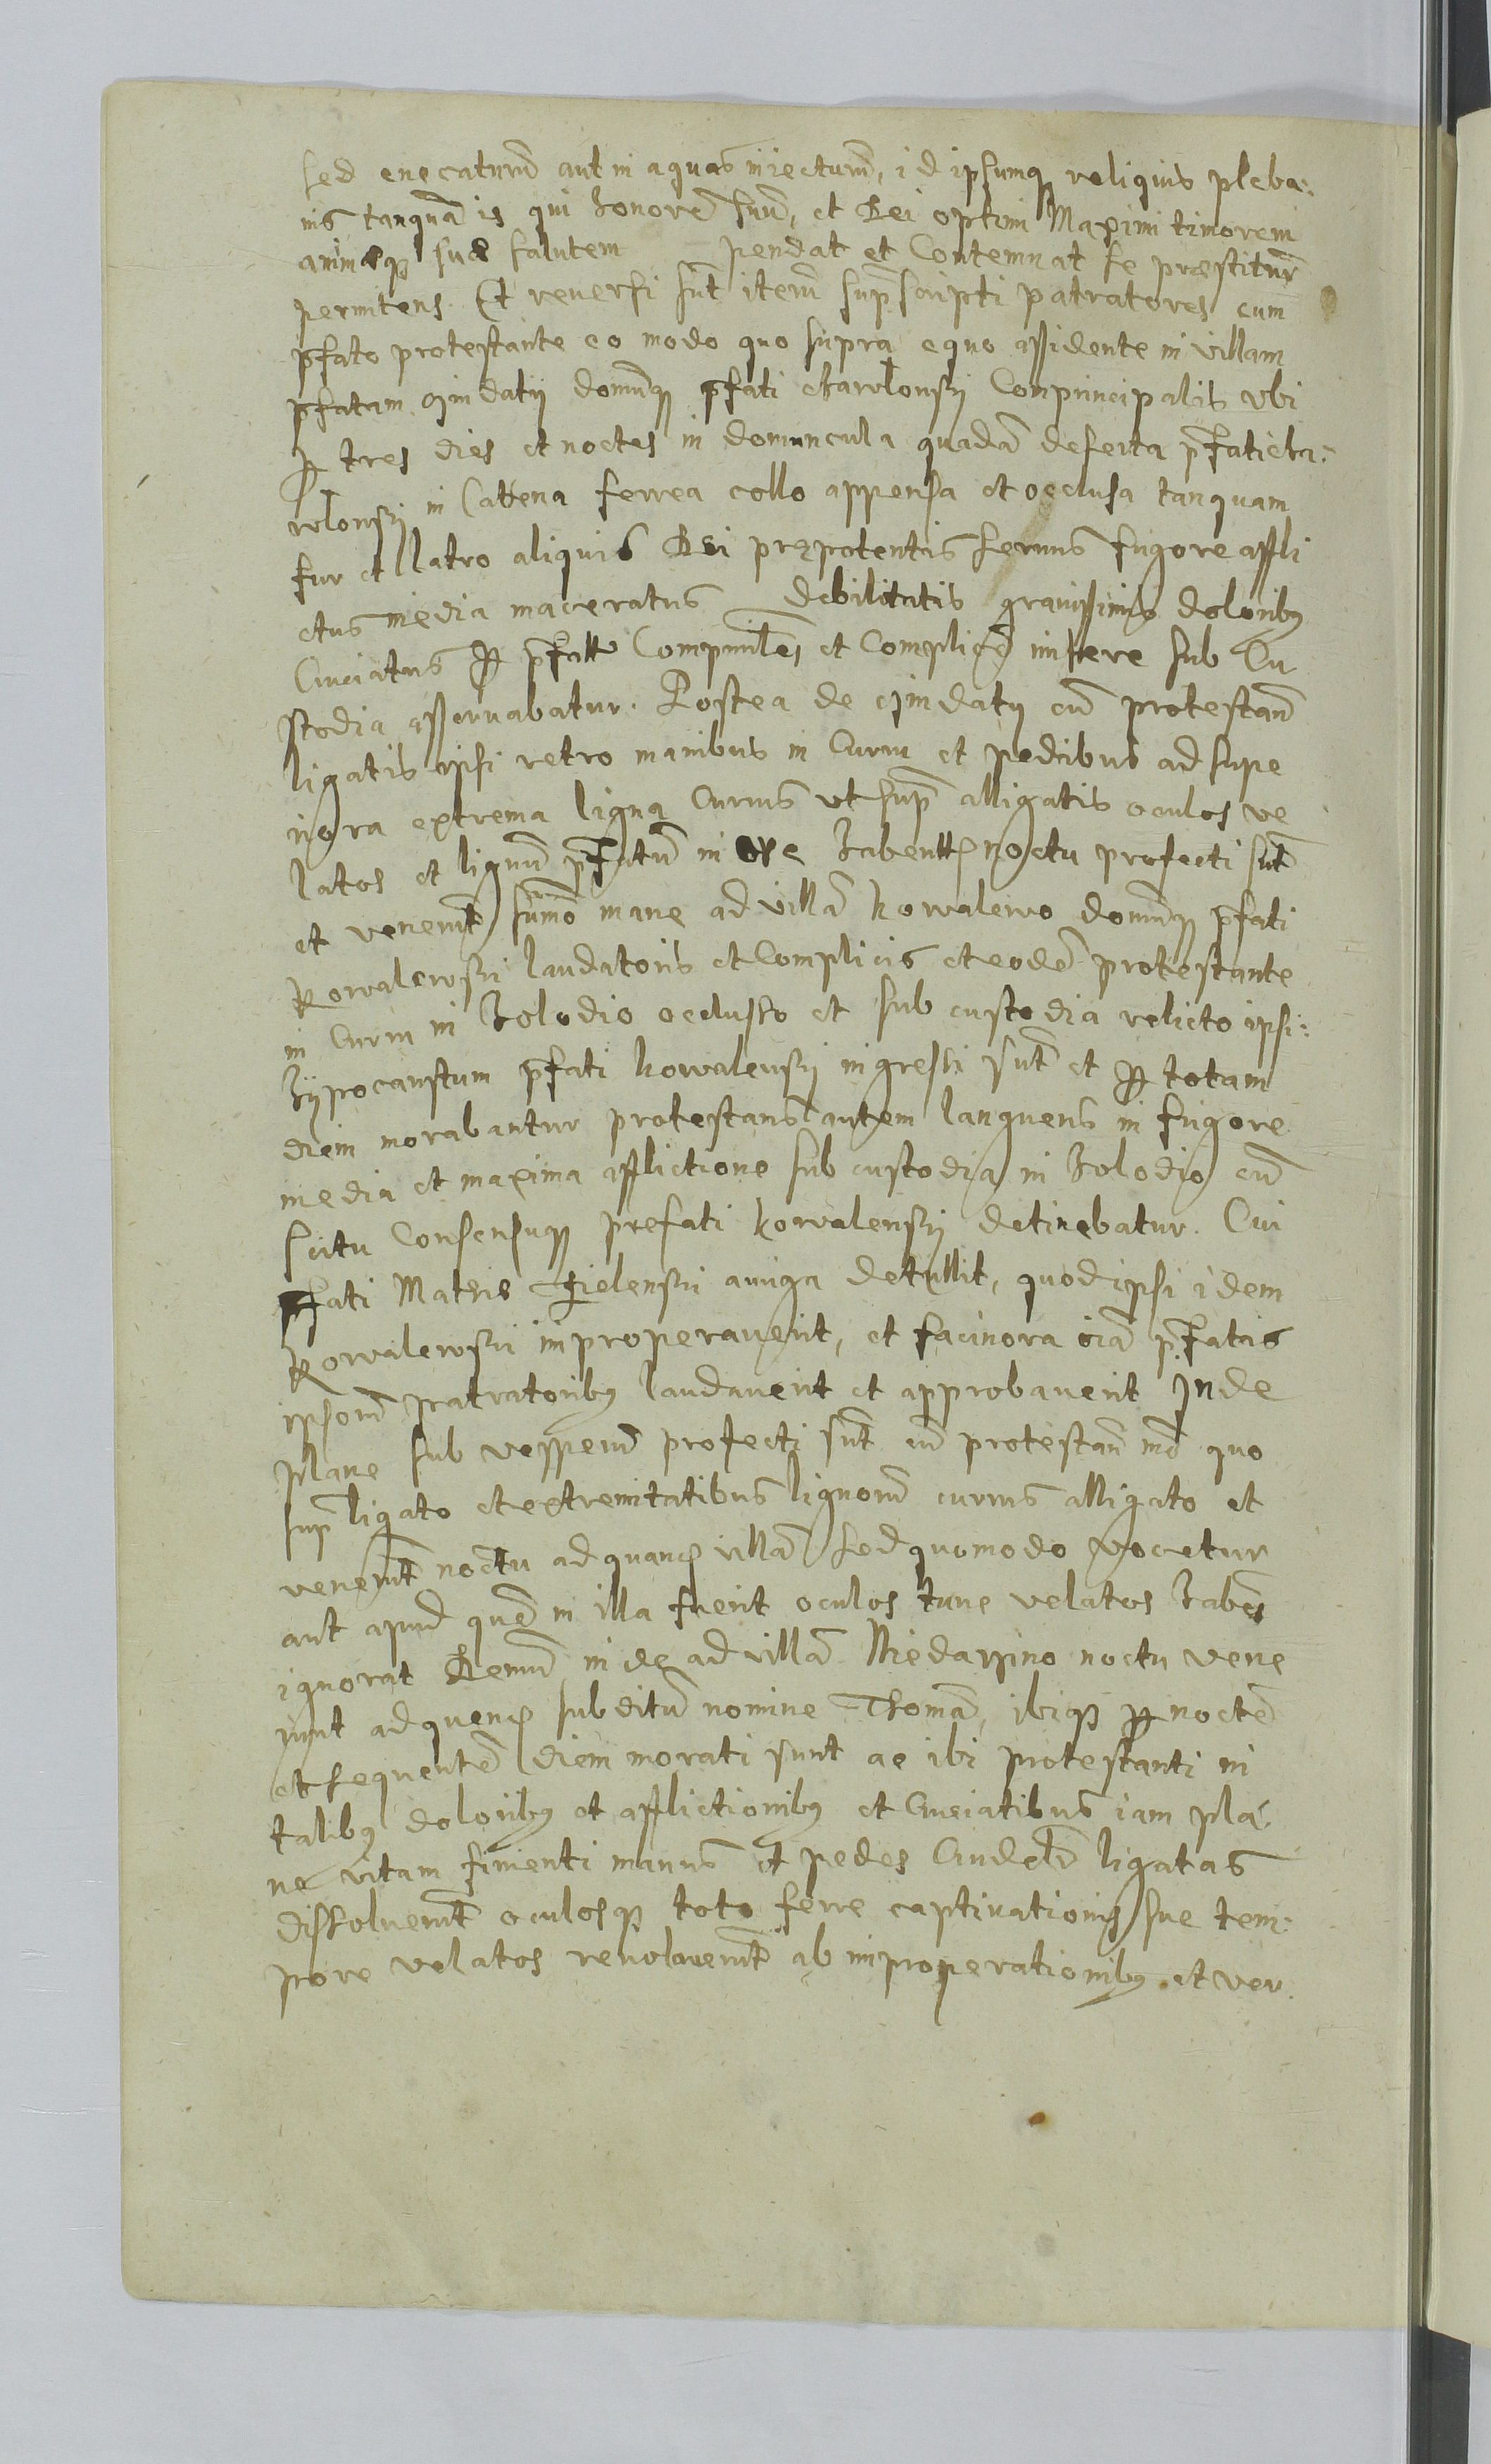 sed enecaturū aut in aquas iniecturū, id ipsumq reliquis pleba:
nis tanquā is qui honorē suū, et Dei optimi Maximi timorem
animæq suæ salutem pendat et Contemnat se præstiturū
permitens. Et reuersi sūt iterū supscripti patratores cum
pfato protestante eo modo quo supra equo assidente in villam
pfatam domūq pfati Conprincipalis vbi
P tres dies et noctes in domuncula quadā deserta pfati cha:
wlonsṙj in Cathena ferrea collo appensa et occlusa tanquam
fur et latro aliquis Dei prępotentis seruus frigore affli
ctus inedia maceratus debilitatis grauissimis doloribg
Cruciatus P pfatt et Complices misere sub Cu
stodia asseruabatur. Postea de cū protestan̄
ligatis ipsi retro manibus in Curru et pedibus ad supe
riora extrema ligna Currus vt sup alligatis oculos ve
latos et lignū pfatū in ore habentt noctu profecti sūt
et venerūt sūmo mane ad villā kowalewo domūq pfati
Kowalewski laudatoris et Complicis et eodē protestante
in Curru in holodio occluso et sub custodia relicto ipsi:
hypocaustum pfati kowalewskj ingressi sūt et P totam
diem morabantur protestans autem languens in frigore
inedia et maxima afflictione sub custodia in holodio cū
scitu Consensuq prefati kowalenskj detinebatur. Cui
pfati Mathie Zielenski auriga detullit, quod ipsi idem
Kowalewski improperauerit, et facinora oīa pfatis
ipsorū patratoribg laudauerit et approbauerit Inde
plane sub vesperū profecti sūt cū protestan̄ mō quo
sup ligato et extremitatibus lignorū currus alligato et
venerūt noctu ad quanq villā sed quomodo vocetur
aut apud quē in illa fuerit oculos tunc velatos habēs
ignorat Demū inde ad villā Niedarzino noctu vene
runt ad quenq subditū nomine Thomā, ibiq P noctē
et sequentē diem morati sunt ac ibi protestanti in
talibg doloribg et afflictionibg et Cruciatibus iam pla
ne vitam finienti manus et pedes Crudelr ligatas
dissoluerūt oculosq toto fere captiuationis sue tem:
pore velatos reuolauerūt ab improperationibg et ver